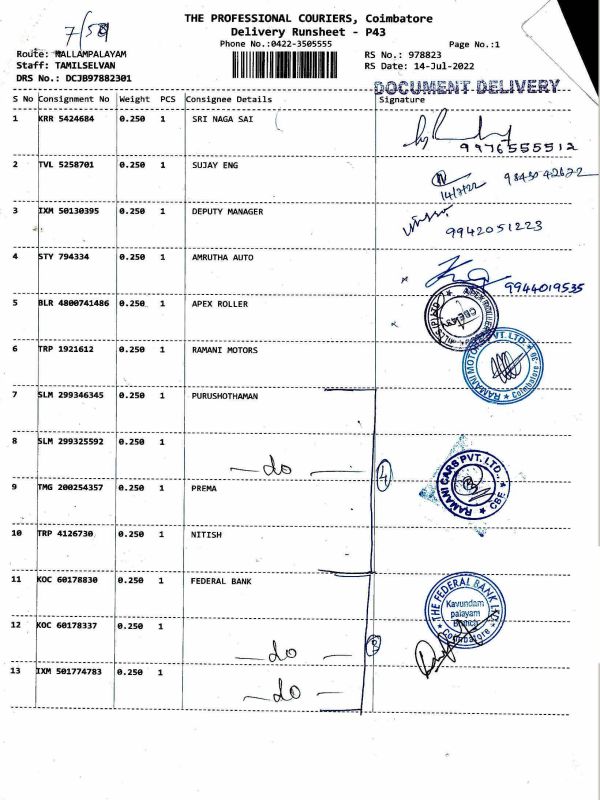 7/59
THE PROFESSIONAL COURIERS, Coimbatore
Delivery Runsheet - P43
Phone No.:0422-3505555
Page No.:1
Route: MALLAMPALAYAM
RS No.: 978823
Staff: TAMILSELVAN
RS Date: 14-Jul-2022
DRS No.: DCJB97882301
DOCUMENT DELIVERY
S No Consignment No Weight PCS Consignee Details Signature
1 KRR 5424684 0.250 1 SRI NAGA SAI
9976555512
2 TVL 5258701 0.250 1 SUJAY ENG
14/7/22
3 IXM 50130395 0.250 1 DEPUTY MANAGER
9942051223
4 STY 794334 0.250 1 AMRUTHA AUTO
9944019535
5 BLR 4800741486 0.250 1 APEX ROLLER
6 TRP 1921612 0.250 1 RAMANI MOTORS
RAMANI MOTORS PVT. LTD. Coimbatore
7 SLM 299346345 0.250 1 PURUSHOTHAMAN
8 SLM 299325592 0.250 1
— do —
4
RAMANI CARS PVT. LTD., CBE
9 TMG 200254357 0.250 1 PREMA
10 TRP 4126730 0.250 1 NITISH
11 KOC 60178830 0.250 1 FEDERAL BANK
THE FEDERAL BANK LTD. Coimbatore
Kavundam
palayam
Branch
12 KOC 60178337 0.250 1
— do —
13 IXM 501774783 0.250 1
— do —